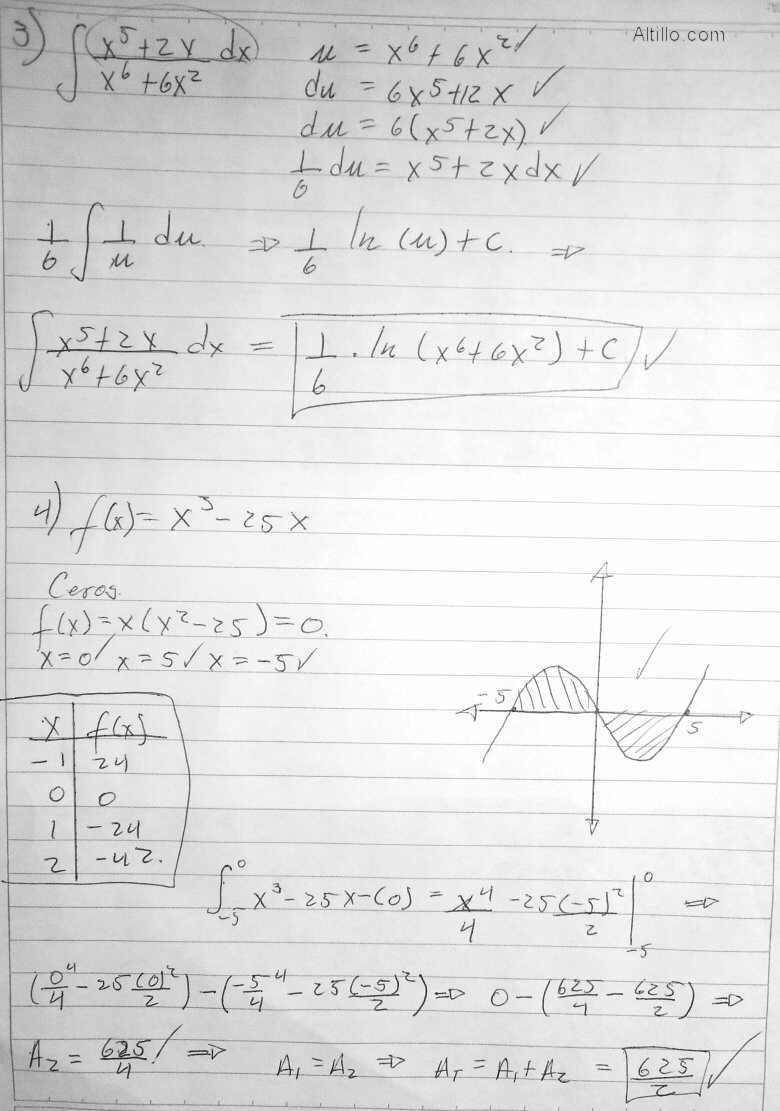 Altillo.com
3) ∫ (x^5 + 2x)/(x^6 + 6x^2) dx
u = x^6 + 6x^2 ✓
du = 6x^5 + 12x ✓
du = 6(x^5 + 2x) ✓
1/6 du = x^5 + 2x dx ✓
1/6 ∫ 1/u du. ⇒ 1/6 ln (u) + C. ⇒
∫ (x^5 + 2x)/(x^6 + 6x^2) dx = 1/6 · ln (x^6 + 6x^2) + C ✓
4) f(x) = x^3 - 25x
Ceros.
f(x) = x(x^2 - 25) = 0.
x = 0 ✓ x = 5 ✓ x = -5 ✓
-5
5
x | f(x)
-1 | 24
0 | 0
1 | -24
2 | -42.
∫_{-5}^{0} x^3 - 25x - (0) = x^4/4 - 25(-5)^2/2 |_{-5}^{0} ⇒
(0^4/4 - 25(0)^2/2) - (-5^4/4 - 25(-5)^2/2) ⇒ 0 - (625/4 - 625/2) ⇒
A2 = 625/4 ✓ ⇒ A1 = A2 ⇒ AT = A1 + A2 = 625/2 ✓